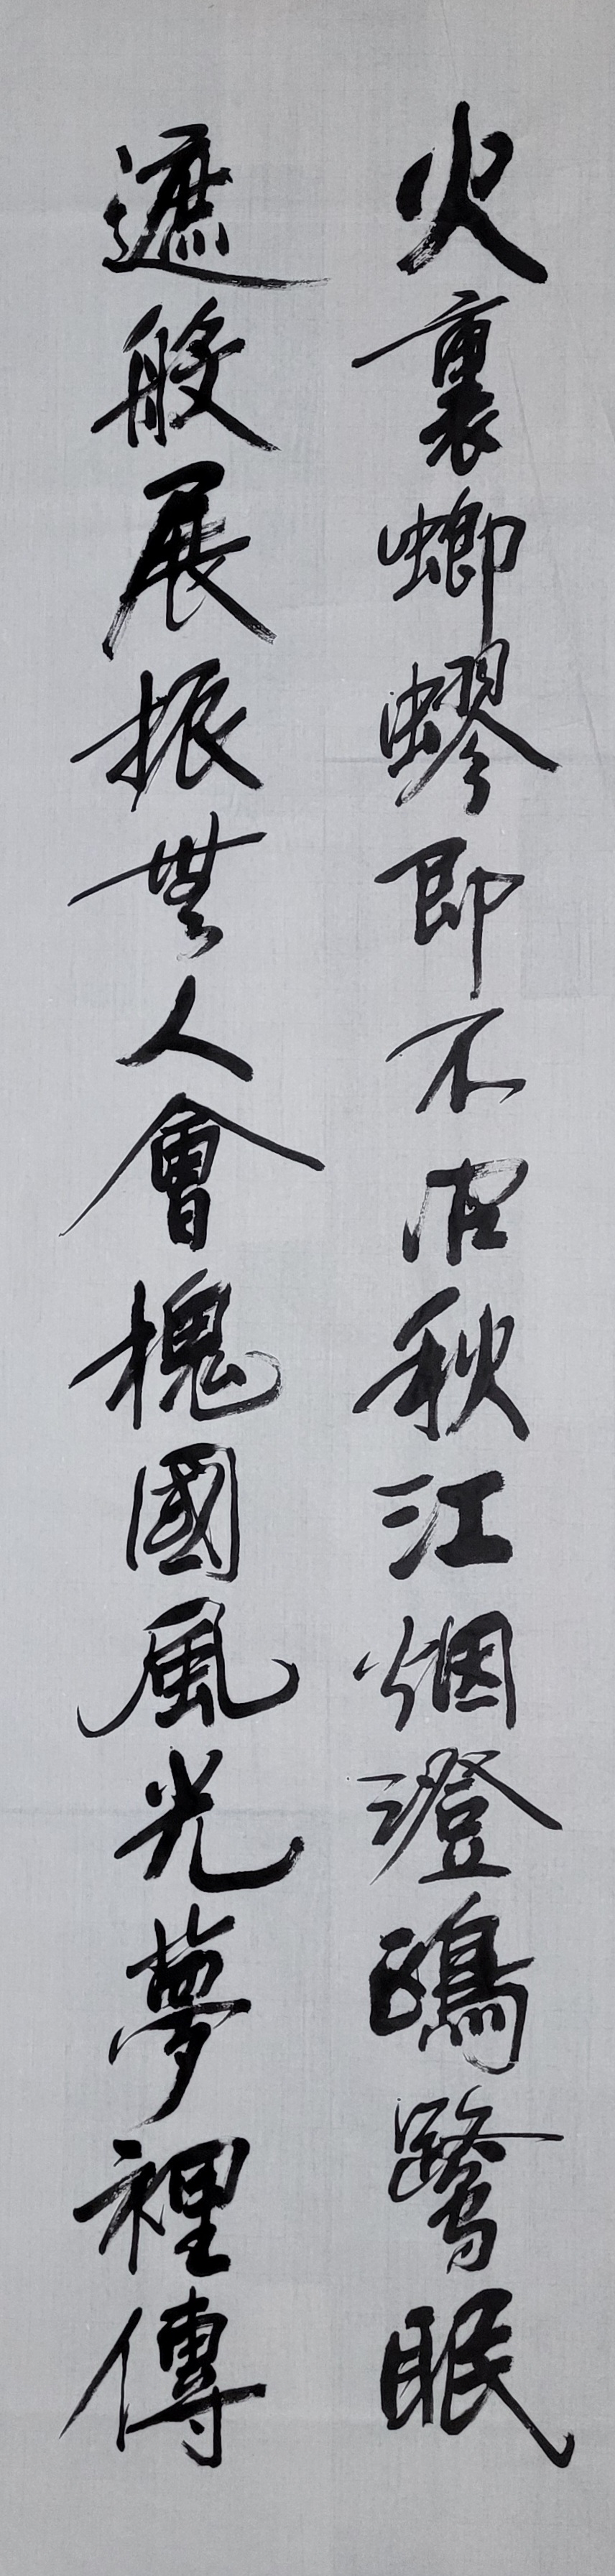 火裏蝍蟉即不问秋江烟澄鷗鷺眠
遮般展振無人會槐國風光夢裡傳